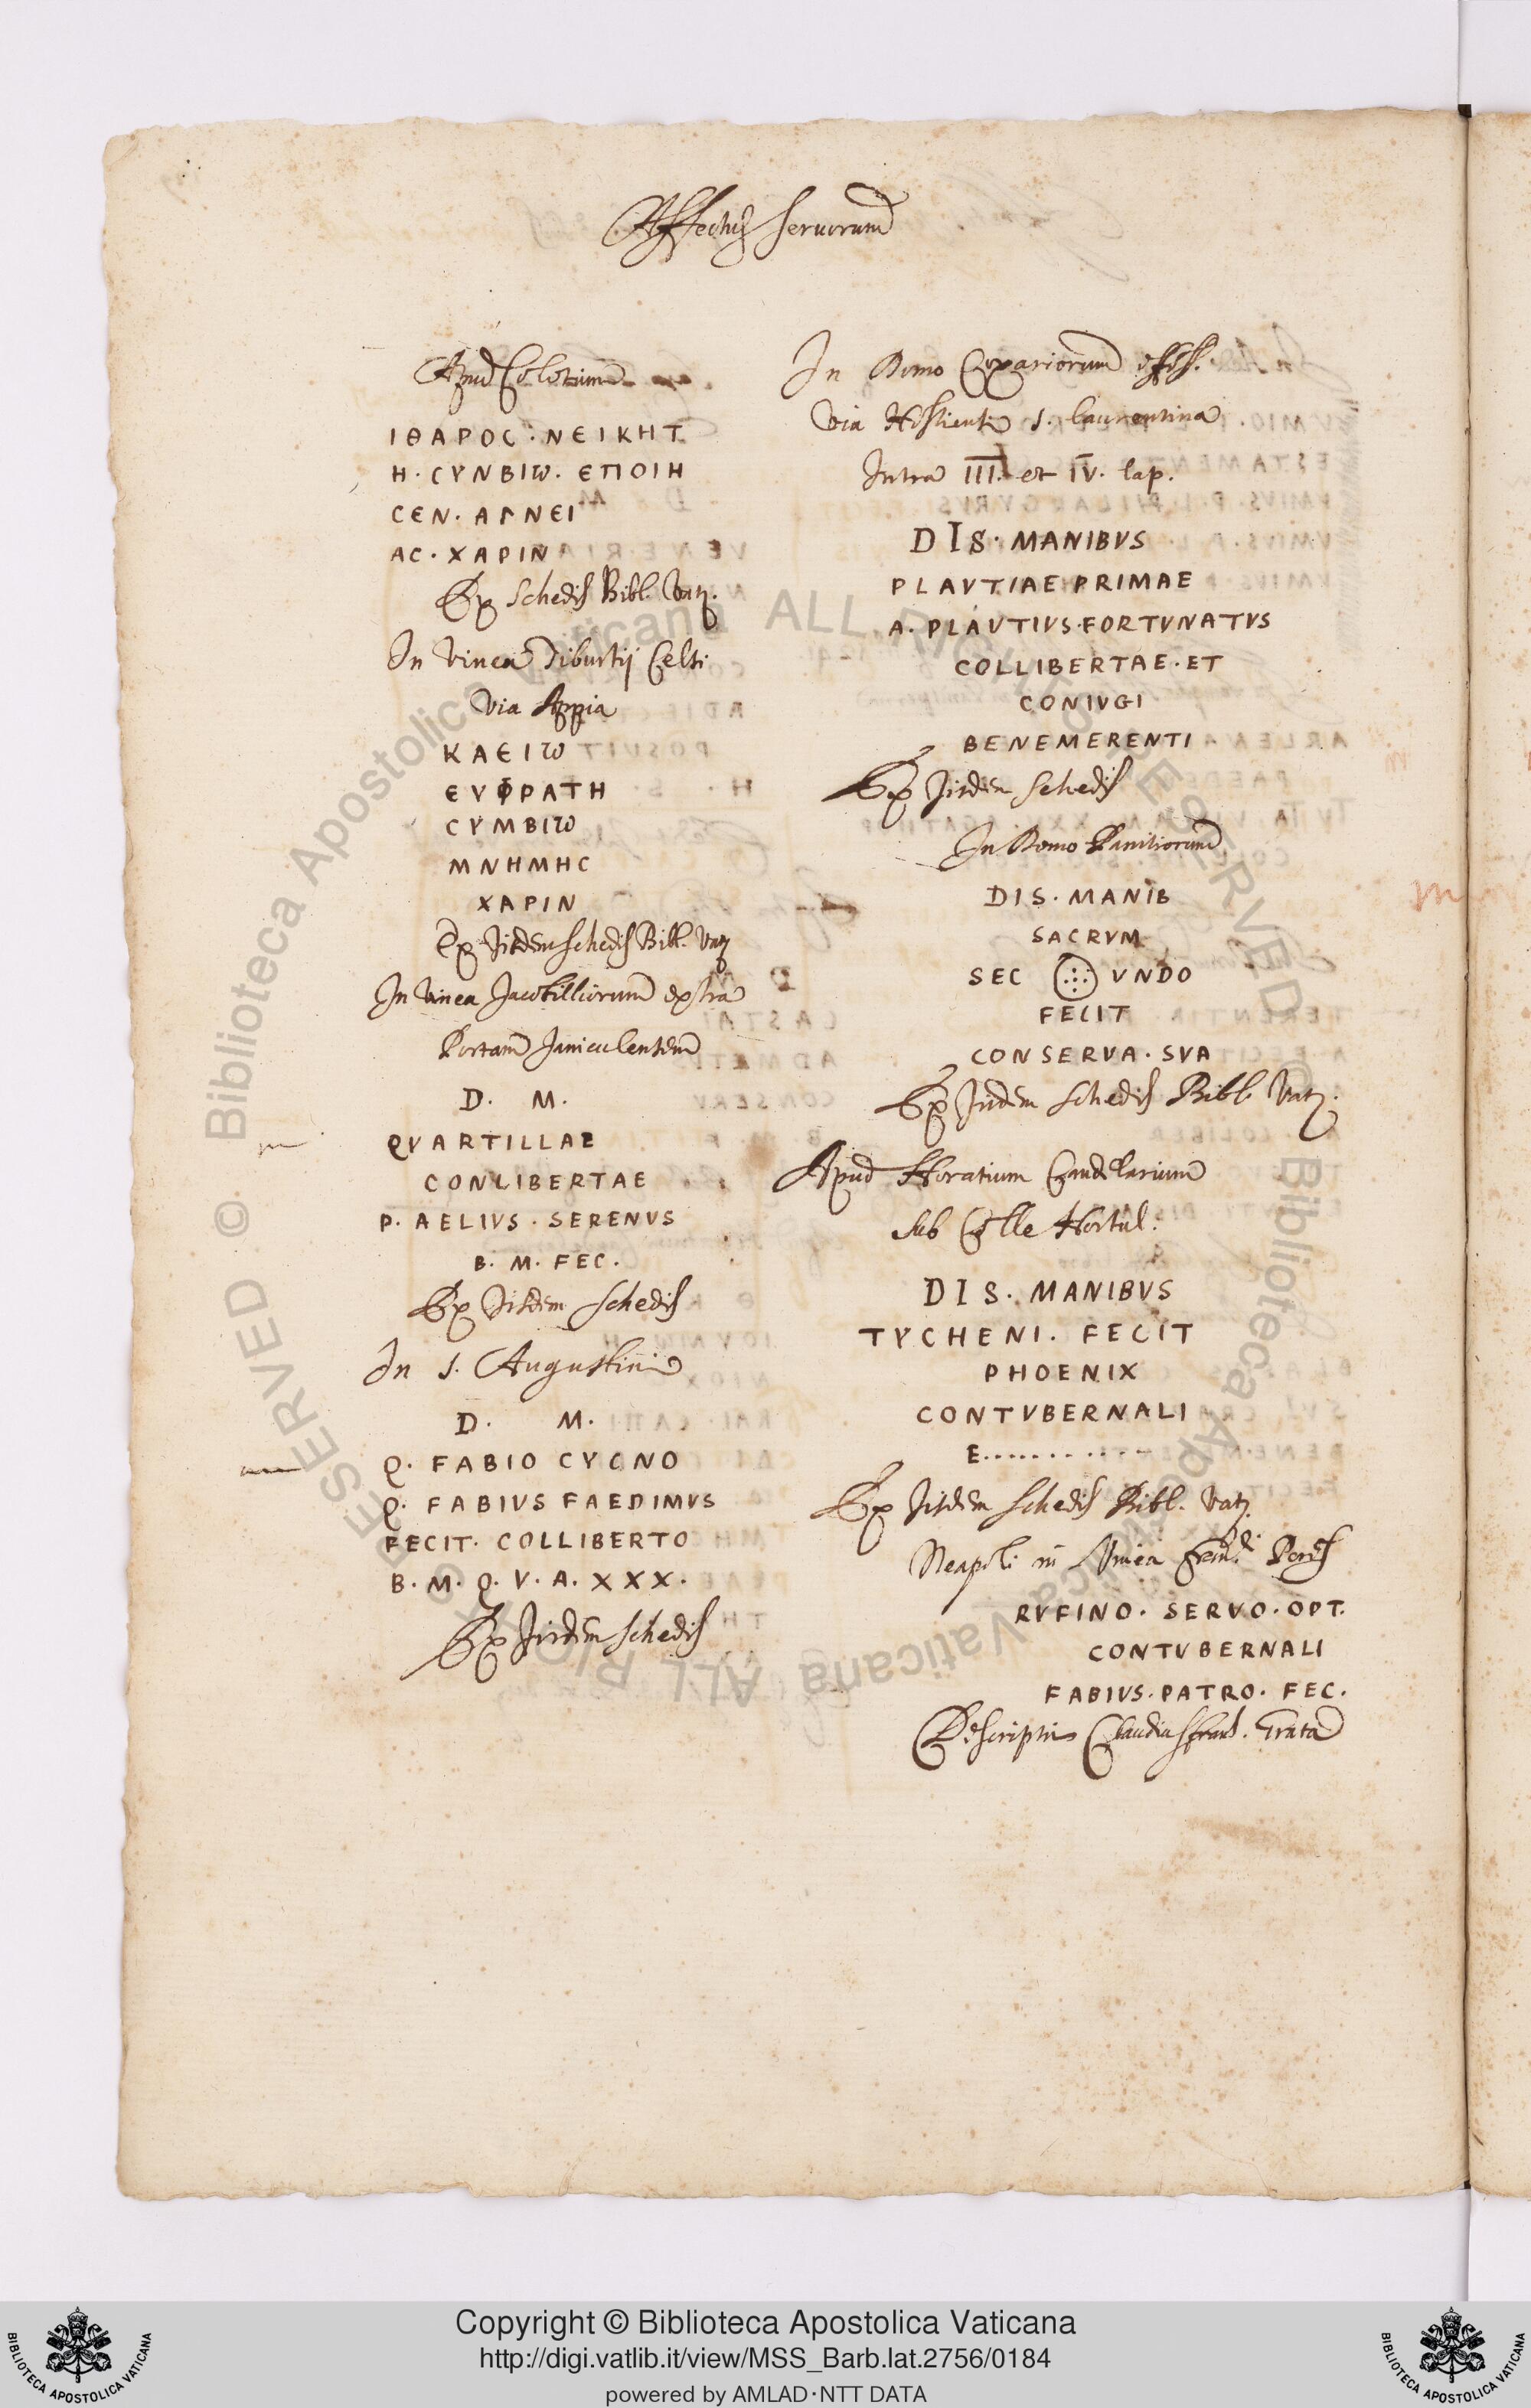 Affectus servorum
Apud Colotium
ΙΘΑΡΟC · ΝΕΙΚΗΤ
Η · CΥΝΒΙω · ΕΠΟΙΗ
CΕΝ · ΑΓΝΕΙ
ΑC · ΧΑΡΙΝ
Ex schedis Bibl. Vat.
In Vinea Tiburtij Celsi
Via Appia
ΚΛΕΙω
ΕΥΦΡΑΤΗ
CΥΜΒΙω
ΜΝΗΜΗC
ΧΑΡΙΝ
Ex Jisdem schedis Bibl. Vat.
In Vinea Jacobilliorum extra
Portam Janiculensem
D. M.
QVARTILLAE
CONLIBERTAE
P. AELIVS · SERENVS
B. M. FEC.
Ex Jisdem schedis
In S. Augustini
D. M.
Q. FABIO CYCNO
Q. FABIVS FAEDIMVS
FECIT. COLLIBERTO
B. M. Q. V. A. XXX.
Ex Jisdem schedis
In Domo
Via Hostiensi S. Laurentina
Intra III. et IV. lap.
DIS · MANIBVS
PLAVTIAE PRIMAE
A. PLAVTIVS · FORTVNATVS
COLLIBERTAE · ET
CONIVGI
BENEMERENTI
Ex Jisdem schedis
In Domo
DIS · MANIB
SACRVM
SEC VNDO
FECIT
CONSERVA · SVA
Ex Jisdem schedis Bibl. Vat.
Apud Horatium Candelarium
sub Colle Hortul.
DIS. MANIBVS
TYCHENI. FECIT
PHOENIX
CONTVBERNALI
E............
Ex Jisdem schedis Bibl. Vat.
Neapoli in Vinea
RVFINO · SERVO · OPT.
CONTVBERNALI
FABIVS · PATRO · FEC.
Copyright © Biblioteca Apostolica Vaticana
http://digi.vatlib.it/view/MSS_Barb.lat.2756/0184
powered by AMLAD·NTT DATA
BIBLIOTECA APOSTOLICA VATICANA
BIBLIOTECA APOSTOLICA VATICANA
© Biblioteca Apostolica Vaticana ALL RIGHTS RESERVED
© Biblioteca Apostolica Vaticana ALL RIGHTS RESERVED